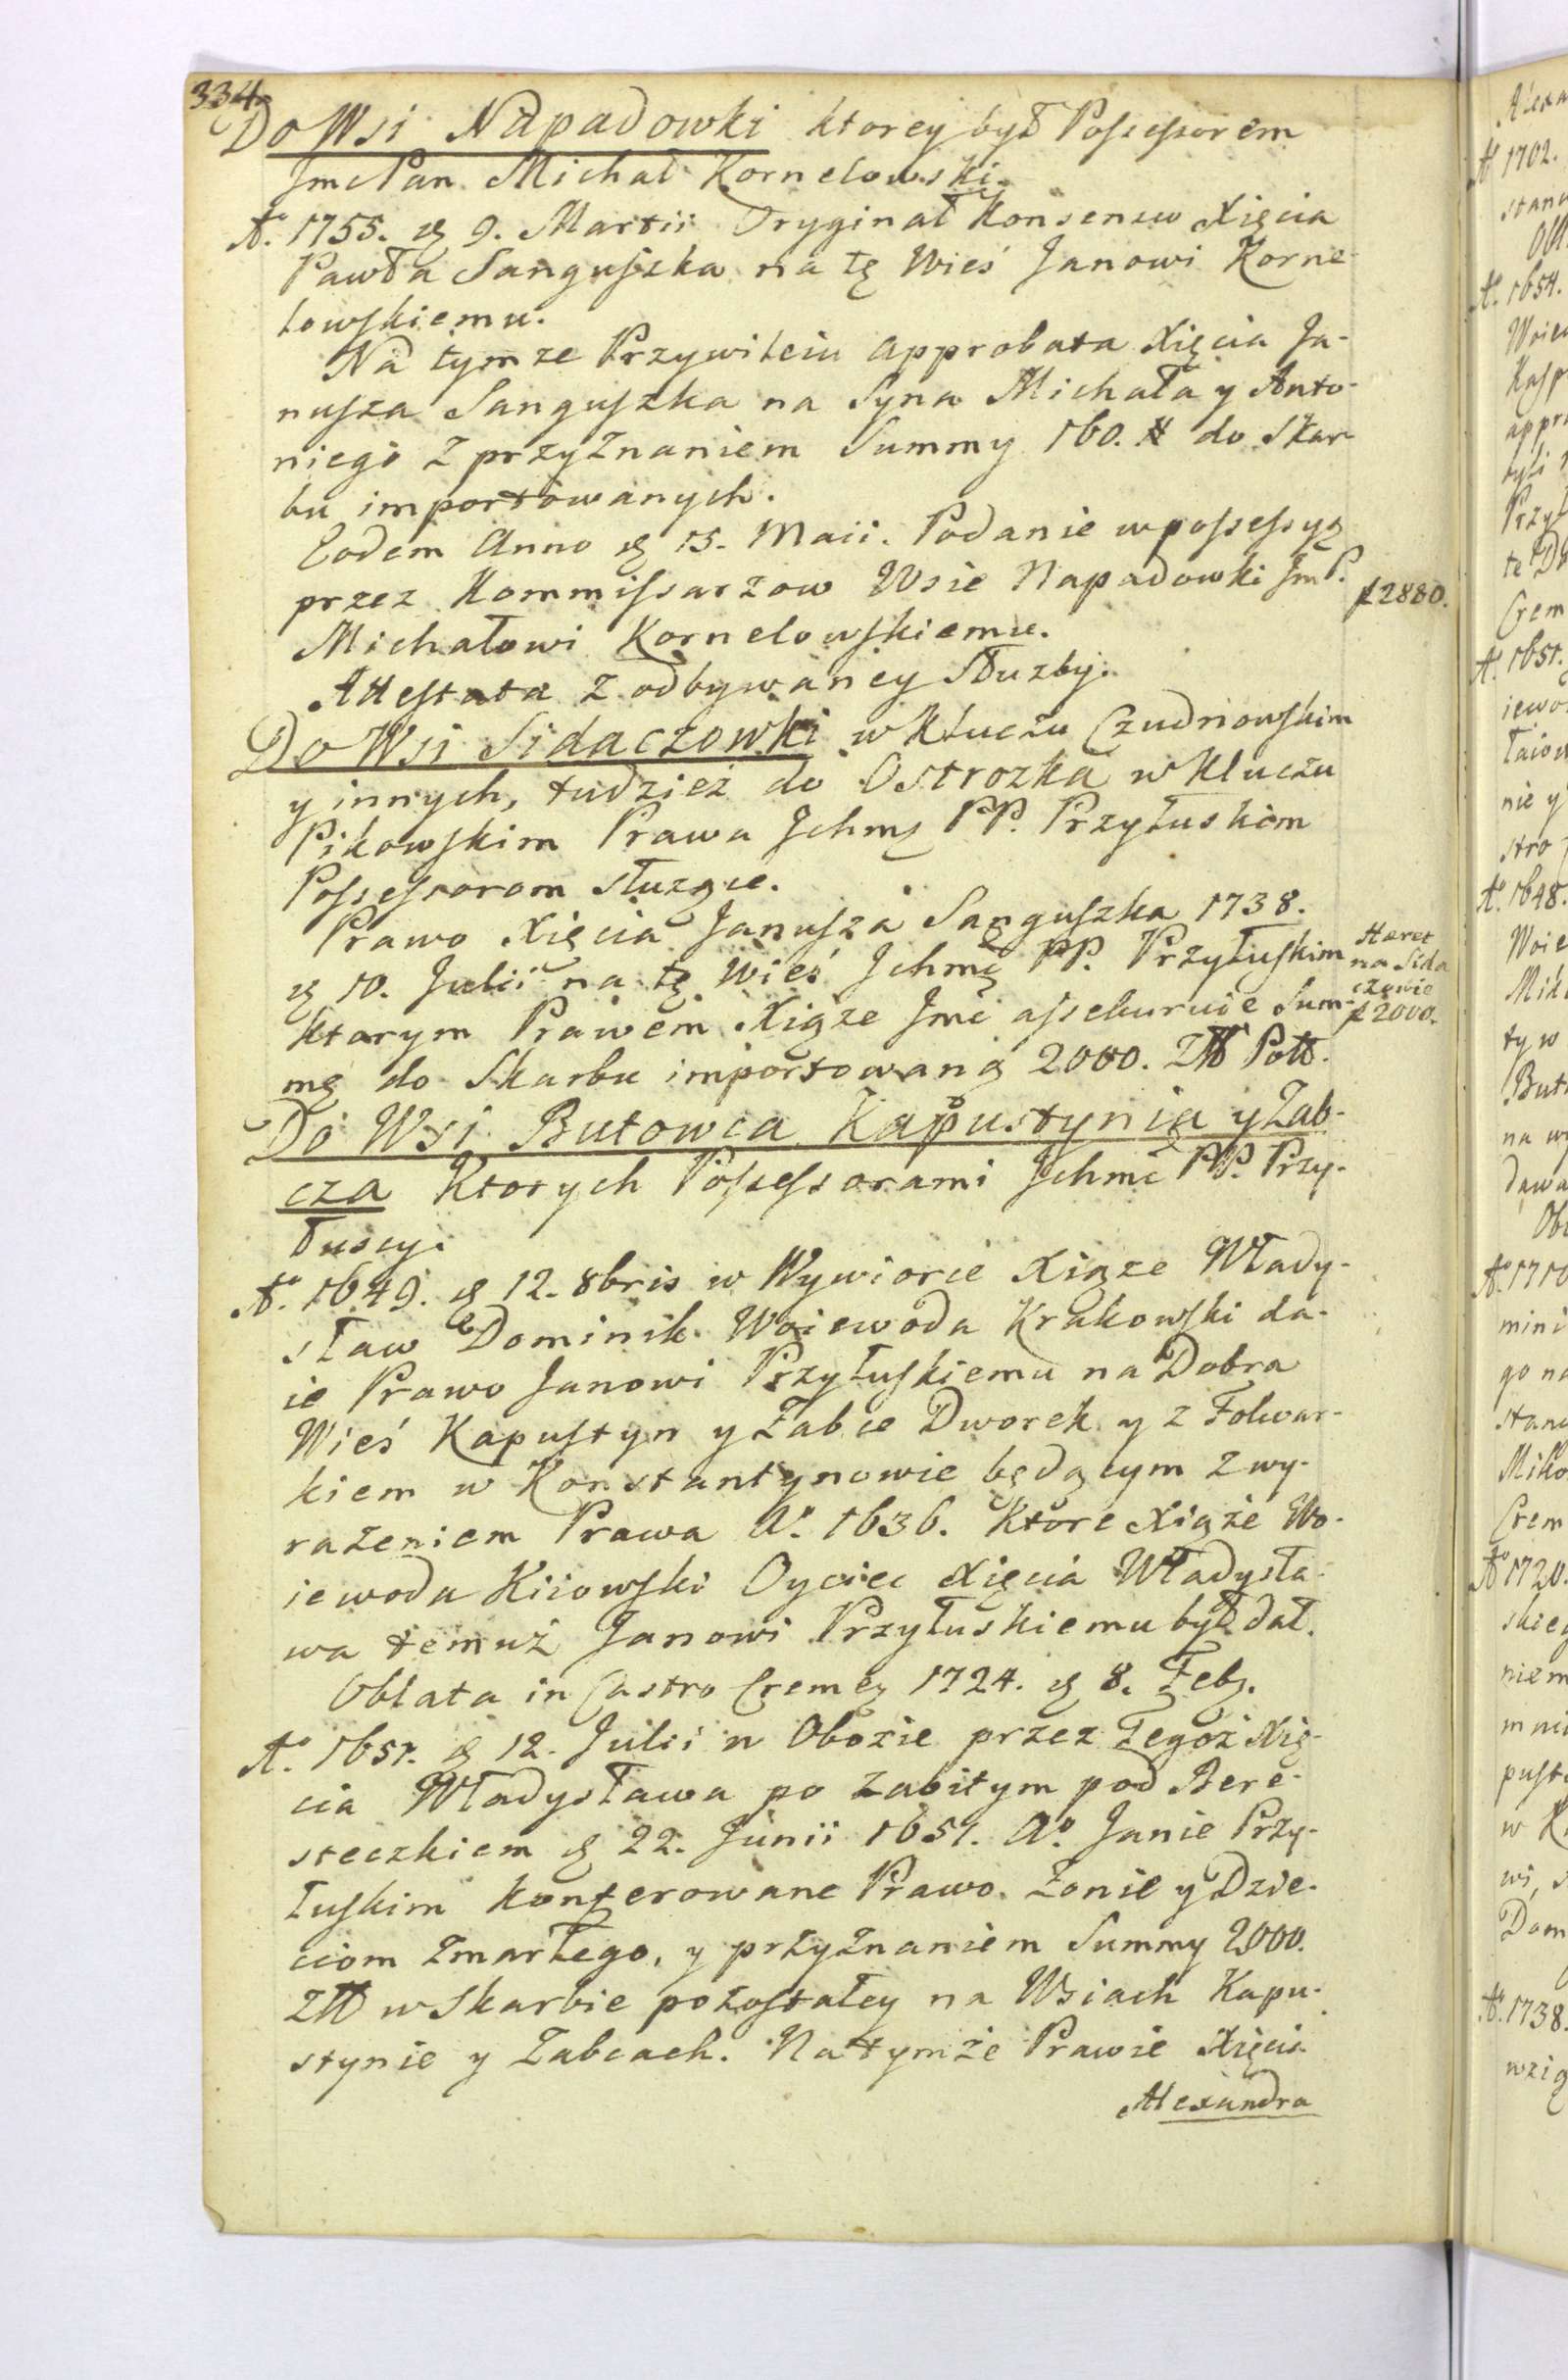 334
Do Wsi Napadowki ktorey był Possessorem
Jmc Pan Michał Kornelowski.
Aº. 1755. d 9. Martii Oryginał Konsensu Xięcia
Pawła Sanguszka na tę Wieś Janowi Korne-
lowskiemu.
Na tymze Przywileiu Approbata Xięcia Ja-
nusza Sanguszka na Syna Michała y Anto-
niego z przyznaniem Summy 160. # do Skar-
bu importowanych.
Eodem Anno d 15. Maii. Podanie w possessyą
przez Kommissarzow Wsie Napadowki JmP.
Michałowi Kornelowskiemu.
ƒ 2880.
Attestata z odbywaney Służby.
Do Wsi Sidaczowki w Kluczu Czudnowskim
y innych, tudzież do Ostrozka w Kluczu
Pikowskim Prawa Jchmę PP. Przyłuskim
Possessorom służące.
Prawo Xięcia Janusza Sanguszka 1738.
d 10. Julii na tę Wieś Jchmę PP. Przyłuskim
ktorym Prawem Xiąże Jmć assekuruie Sum-
mę do Skarbu importowaną 2000. Zł Pol.
Hæret
na Sida
czowie
ƒ 2000.
Do Wsi Butowca Kapustynia y Zab-
cza Ktorych Possessorami Jchmć PP. Przy-
łuscy.
Aº. 1649. d 12. 8bris w Wywiorie Xiąze Włady-
sław Dominik Woiewoda Krakowski da-
ie Prawo Janowi Przyłuskiemu na Dobra
Wieś Kapustyn y Żabie Dworek y z Folwar-
kiem w Konstantynowie będącym z wy-
rażeniem Prawa Aº. 1636. Ktore Xiąże Wo-
iewoda Kiiowski Oyciec Xięcia Władysła-
wa temuż Janowi Przyłuskiemu był dał.
Oblata in Castro Cremeӡ 1724. d 8. Febӡ.
Aº. 1651. d 12. Julii w Obozie przez Tegoż Xię-
cia Władysława po zabitym pod Bere-
steczkiem d 22. Junii 1651. Aº. Janie Przy-
łuskim konferowane Prawo Żonie y Dzie-
ciom zmarłego, y przyznaniem Summy 2000.
Zł w Skarbie pozostałey na Wsiach Kapu-
stynie y Zabcach. Na tymże Prawie Xięcia
Alexandra